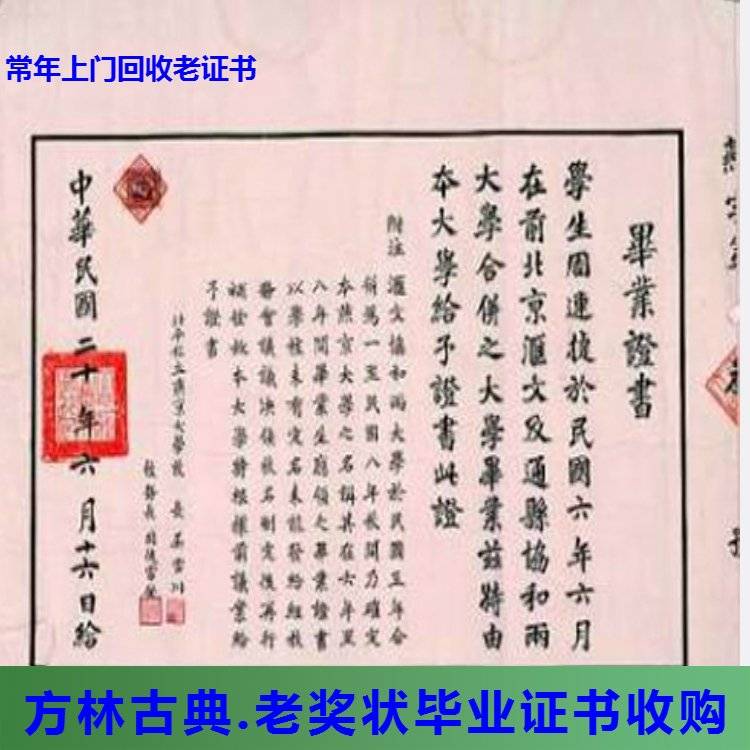 常年上门回收老证书
畢業證書
學生周連捷於民國六年六月
在前北京滙文及通縣協和兩
大學合併之大學畢業茲特由
本大學給予證書此證
附注 滙文協和兩大學於民國五年合
併爲一至民國八年秋間乃確定
本燕京大學之名稱其在六年至
八年間畢業生應領之畢業證書
以學校未有定名未能發給經校
務會議議決俟校名制定後再行
補發故本大學特根據前議業給
予證書
北平私立燕京大學校 長 吳雷川
校務長 司徒雷登
中華民國二十年六月十六日給
方林古典.老奖状毕业证书收购